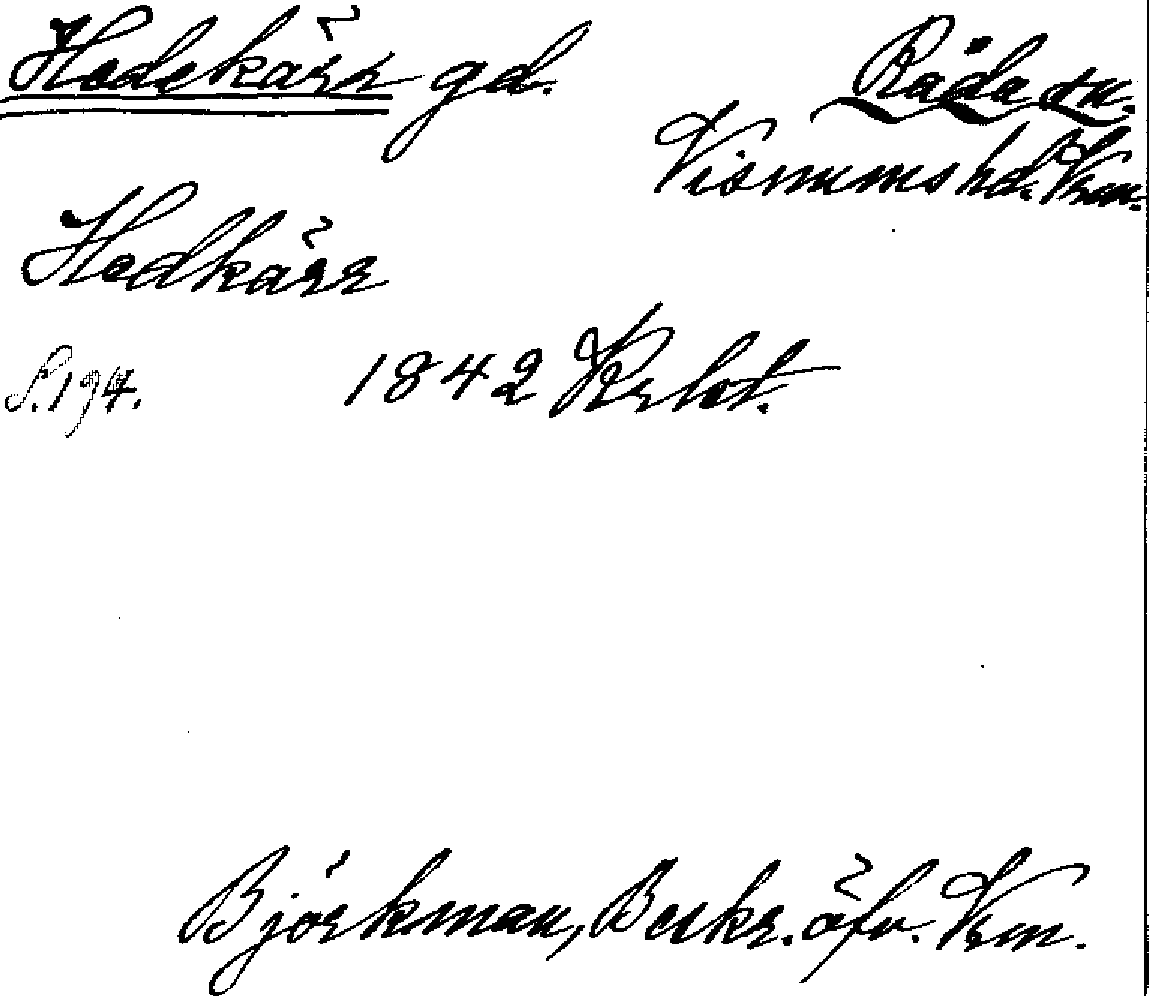 Hodekärr gd.
Råda sn.
Visnums hd. Vrm.
Hodkärr
S. 194. 1842
Björkman, Beskr. öfv. Vrm.